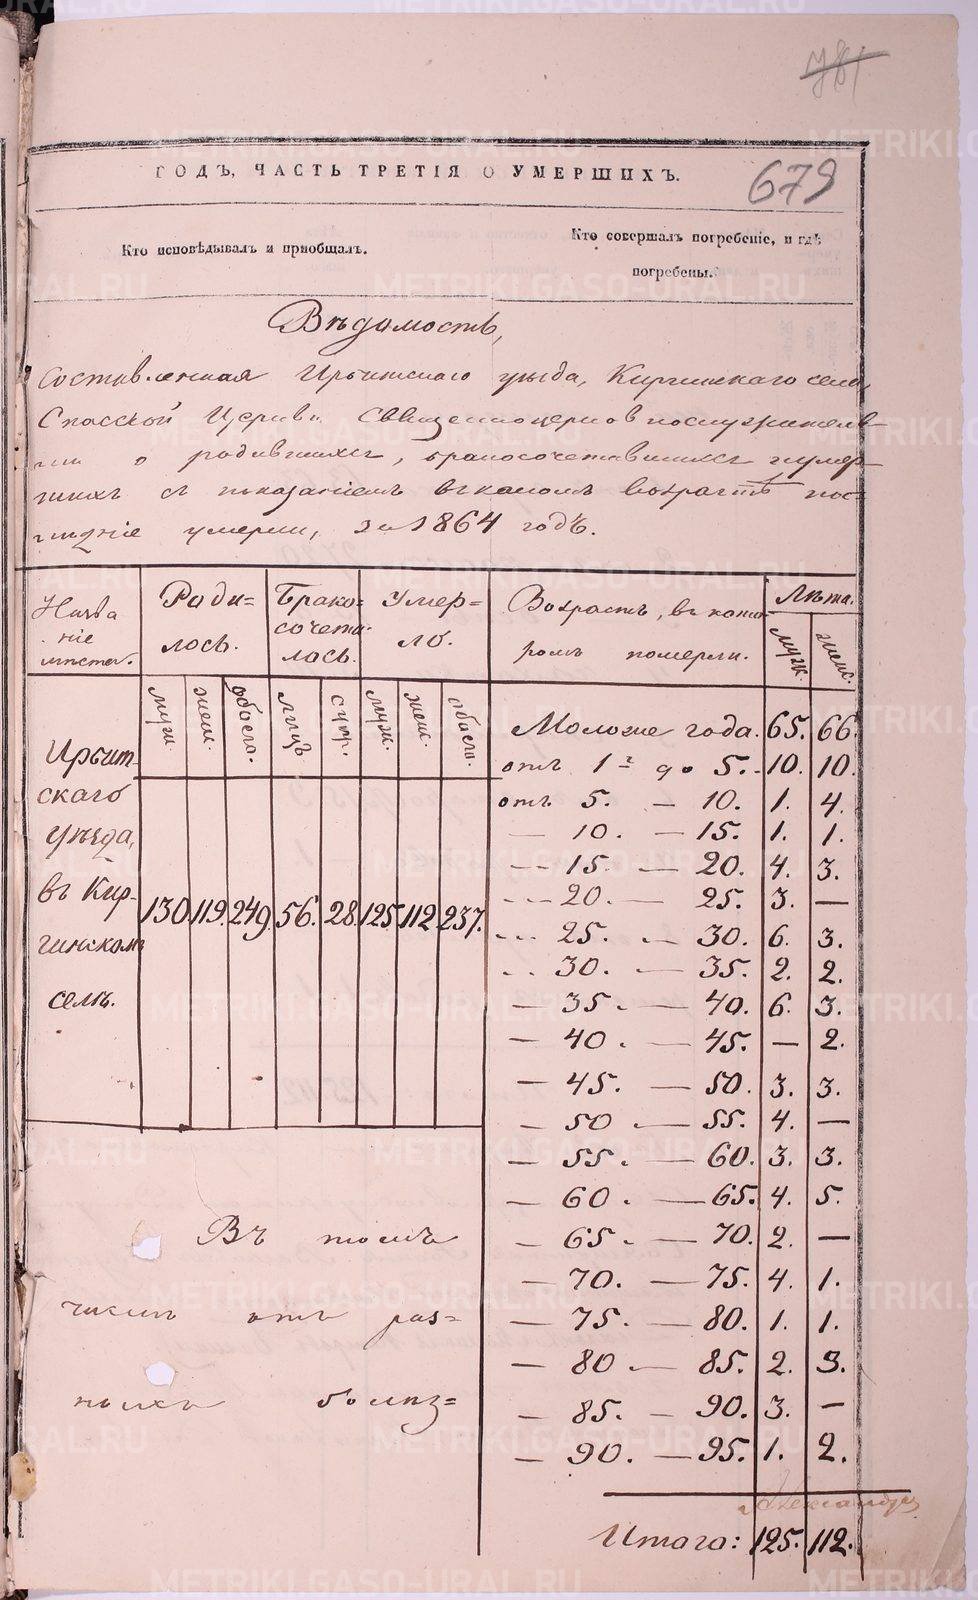 781
679
ГОДЪ, ЧАСТЬ ТРЕТІЯ О УМЕРШИХЪ.
Кто исповѣдывалъ и пріобщалъ.
Кто совершалъ погребеніе, и гдѣ
погребены.
Вѣдомость,
Составленная Ирбитскаго уѣзда, Киргинскаго села,
Спасской Церкви Священноцерковнослужителя-
ми о родившихся, бракосочетавшихся и умер-
шихъ съ показаніемъ въ какомъ возрастѣ пос-
лѣдніе умерли, за 1864 годъ.
Назва
ніе
мѣста.
Роди=
лось.
Брако=
сочета-
лось.
Умер=
ло.
Возрастъ, въ кото
ромъ померли.
Лѣта.
муж.
женс.
муж. жен. обоего. лицъ супр. муж. женс. обоего.
Ирбит-
скаго
уѣзда,
въ Кир-
гинскомъ
селѣ.
130. 119. 249. 56. 28. 125. 112. 237.
Моложе года. 65. 66.
отъ 1 г до 5. 10. 10.
отъ 5. — 10. 1. 4.
— 10. — 15. 1. 1.
— 15. — 20. 4. 3.
— 20. — 25. 3. —
— 25. — 30. 6. 3.
— 30. — 35. 2. 2.
— 35. — 40. 6. 3.
— 40. — 45. — 2.
— 45. — 50. 3. 3.
— 50 — 55. 4. —
— 55. — 60. 3. 3.
— 60. — 65. 4. 5.
— 65. — 70. 2. —
— 70. — 75. 4. 1.
— 75. — 80. 1. 1.
— 80 — 85. 2. 3.
— 85. — 90. 3. —
— 90. — 95. 1. 2.
Въ томъ
числѣ отъ раз=
ныхъ болѣз=
Александръ
Итого: 125. 112.
METRIKI.GASO-URAL.RU